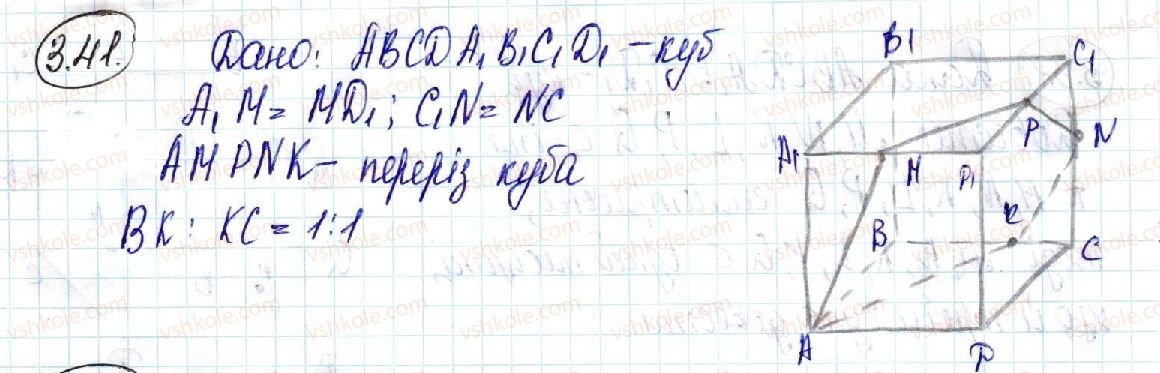 3.41. Дано: ABCDA₁B₁C₁D₁ – куб
A₁M = MD₁; C₁N = NC
AMPNK – переріз куба
BK : KC = 1:1
B1
C1
A1
M
P1
P
N
B
K
C
A
D
vshkole.com